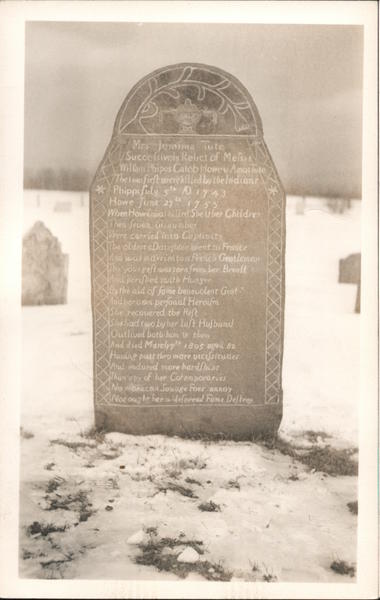 Mrs Jemima Tute
Successively Relict of Messrs
William Phipps Caleb Howe & Amos Tute
The two first were killed by the Indians
Phipps July 5th AD 1743
Howe June 27th 1755
When Howe was killed She & her Children
Then seven in number
Were carried into Captivity
The oldest a Daughter went to France
And was married to a French Gentleman
The youngest was torn from her Breast
And perished with Hunger
By the aid of some benevolent Gent
And her own personal Heroism
She recovered the Rest
She had two by her last Husband
Outlived both him & them
And died March 7th 1805 aged 82
Having past thro more vicissitudes
And endured more hardships
Than any of her Cotemporaries
No more can Savage Foes annoy
Nor aught her wide spread Fame Destroy